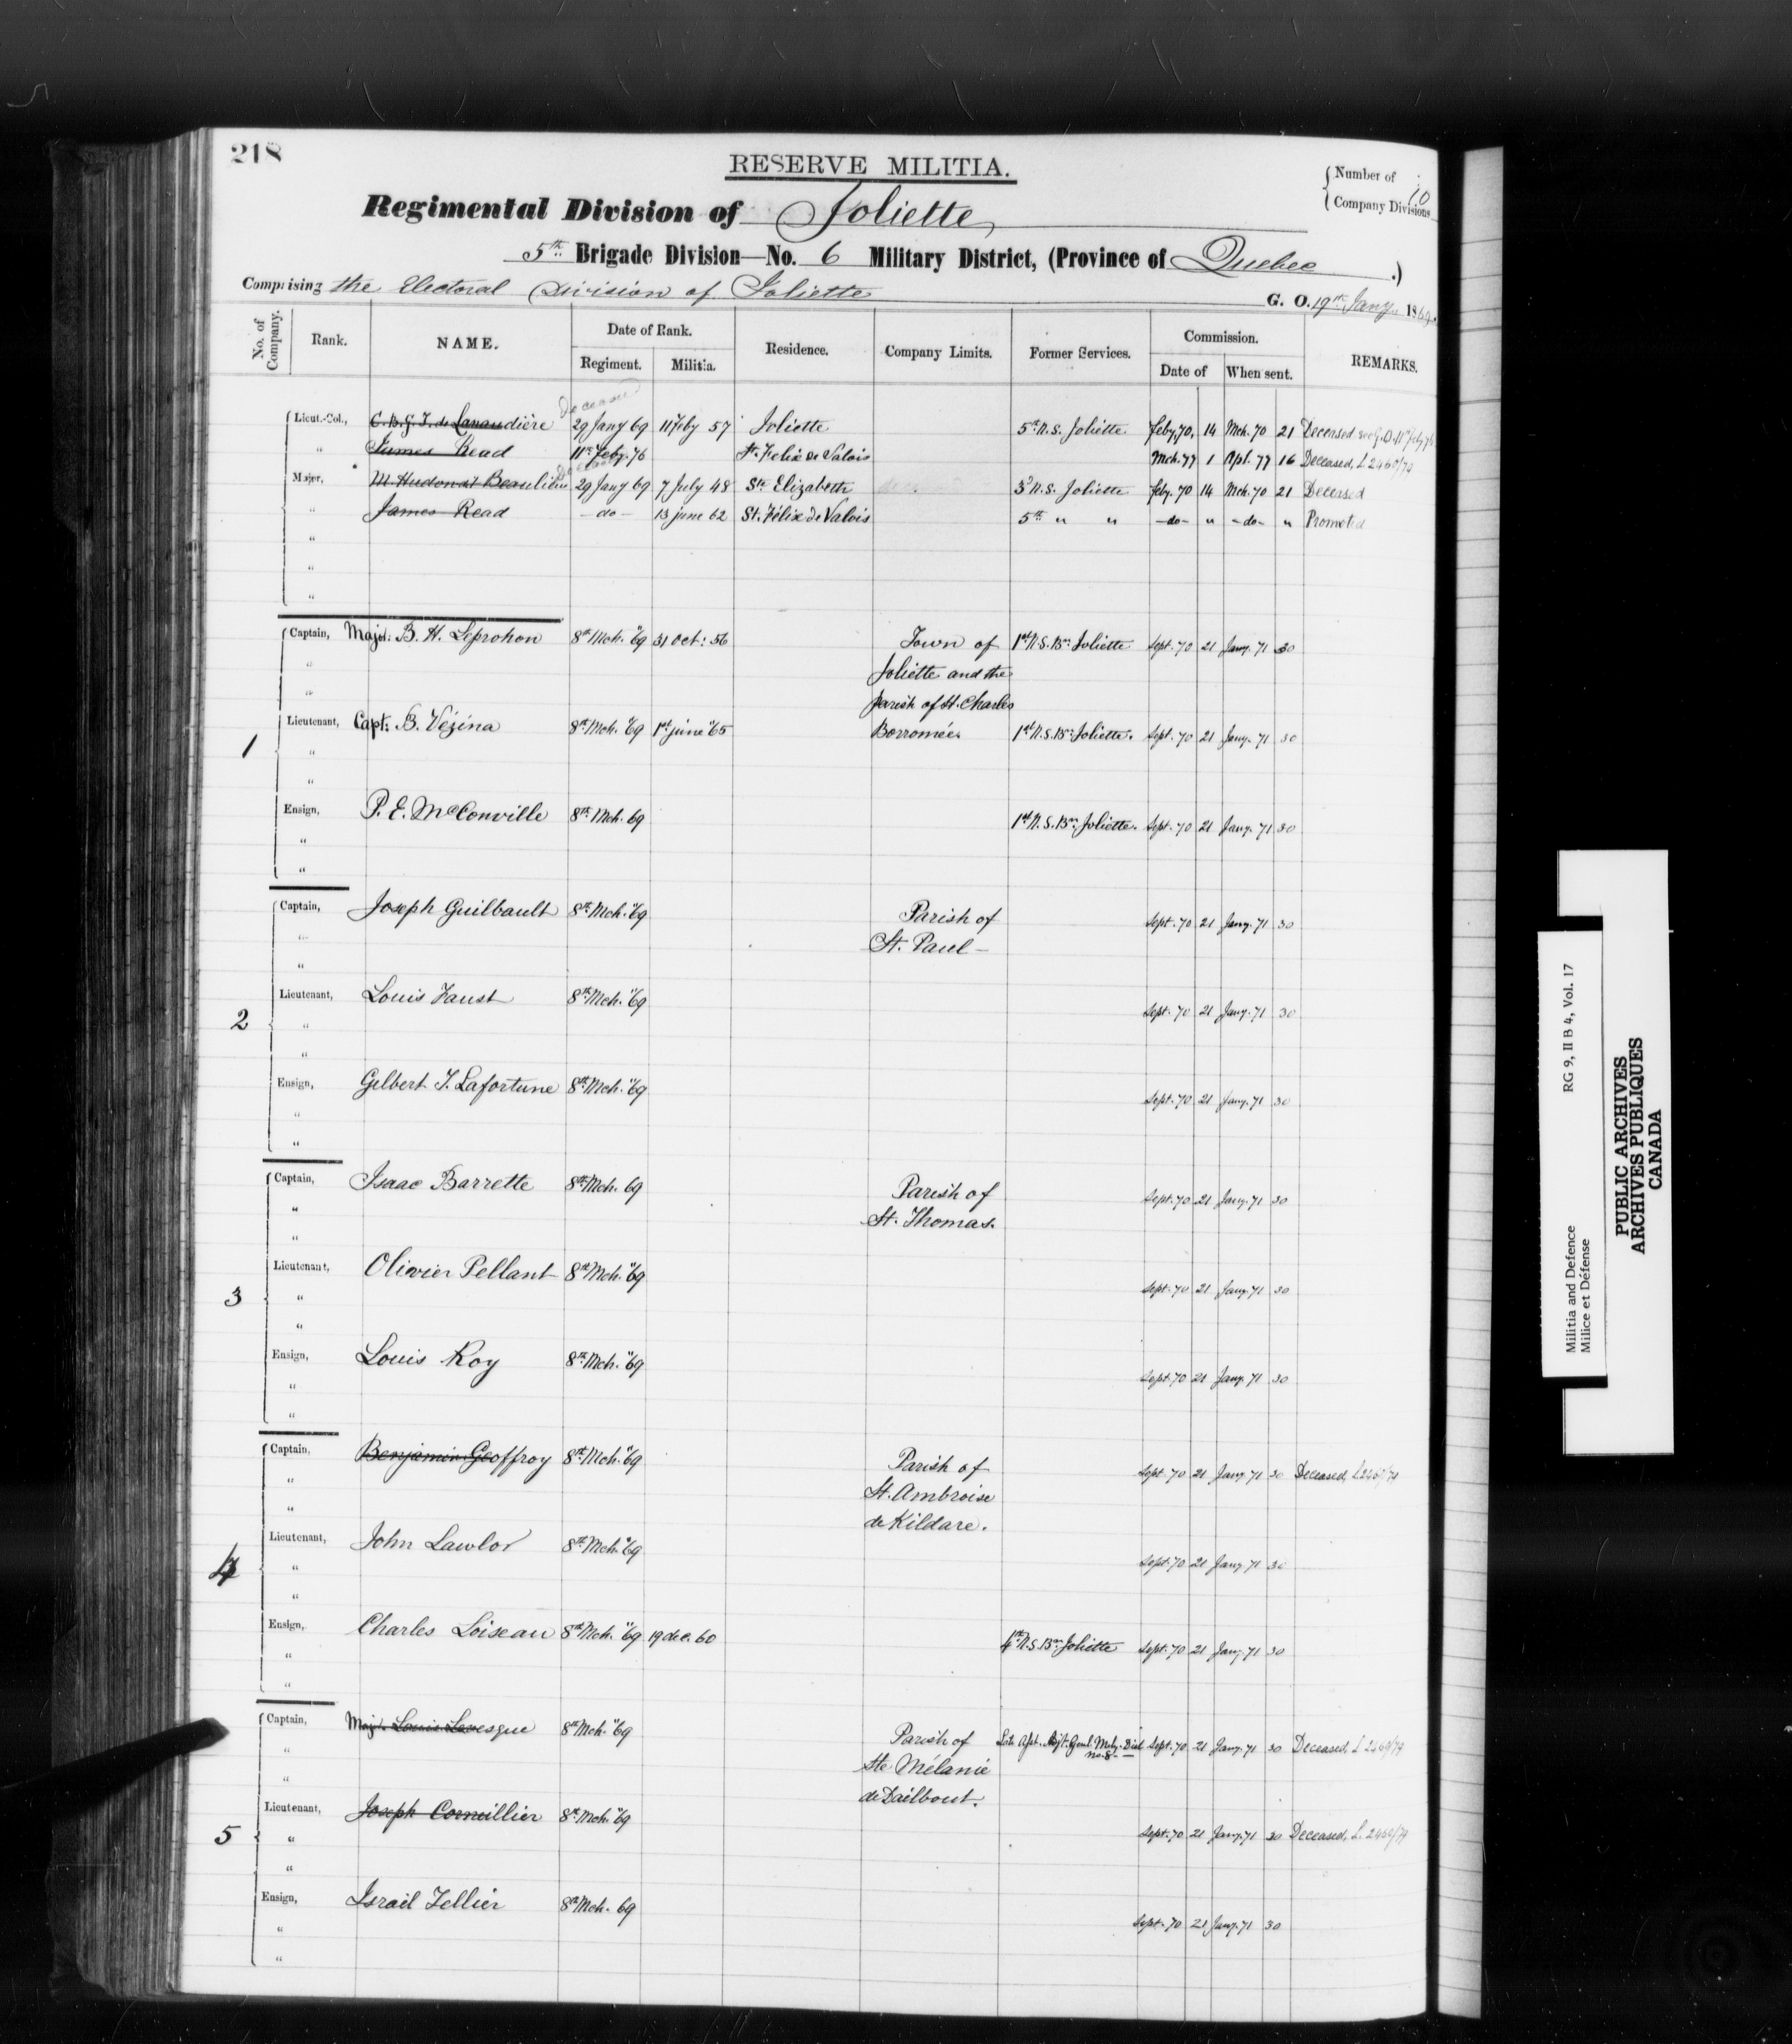 218
RESERVE MILITIA.
Number of Company Divisions 10
Regimental Division of Joliette
5th Brigade Division—No. 6 Military District, (Province of Quebec.)
Comprising the Electoral Division of Joliette G. O. 19th Jany. 1869.
No. of Company. Rank. NAME. Date of Rank. Regiment. Militia. Residence. Company Limits. Former Services. Commission. Date of When sent. REMARKS.
Deceased
Lieut.-Col., C.B.G.T. de Lanaudière 29 Jany 69 11 Feby 57 Joliette 5th N.S. Joliette. Feby. 70, 14 Mch. 70 21 Deceased G.O. 11th Feby 76
" James Read 11th Feby. 76 St. Felix de Valois Mch. 77 1 Apl. 77 16 Deceased, L 2460/79
Deceased
Major, M. Hudon dit Beaulieu 29 Jany 69 7 July 48 Ste Elizabeth 3d N.S. Joliette Feby. 70 14 Mch. 70 21 Deceased
" James Read — do — 13 june 62 St. Félix de Valois 5th " " — do — " — do — " Promoted
"
"
"
Captain, Major B. H. Leprohon 8th Mch. "69 31 Oct: 56 Town of 1st N.S. Bn. Joliette Sept. 70 21 Jany. 71 30
" Joliette and the
" Parish of St. Charles
1 Lieutenant, Capt: B. Vézina 8th Mch. "69 1st june "65 Borromée. 1st N.S. Bn. Joliette. Sept. 70 21 Jany. 71 30
"
"
Ensign, P. E. McConville 8th Mch. 69 1st N.S. Bn. Joliette. Sept. 70 21 Jany. 71 30
"
"
Captain, Joseph Guilbault 8th Mch. "69 Parish of Sept. 70 21 Jany. 71 30
" St. Paul —
"
2 Lieutenant, Louis Faust 8th Mch. "69 Sept. 70 21 Jany. 71 30
"
"
Ensign, Gilbert T. Lafortune 8th Mch. "69 Sept. 70 21 Jany. 71 30
"
"
Captain, Isaac Barrette 8th Mch. 69 Parish of Sept. 70 21 Jany. 71 30
" St. Thomas.
"
3 Lieutenant, Olivier Pellant 8th Mch. "69 Sept. 70 21 Jany. 71 30
"
"
Ensign, Louis Roy 8th Mch. "69 Sept. 70 21 Jany. 71 30
"
"
Captain, Benjamin Geoffroy 8th Mch. "69 Parish of Sept. 70 21 Jany. 71 30 Deceased, L 2460/79
" St. Ambroise
" de Kildare.
4 Lieutenant, John Lawlor 8th Mch. "69 Sept. 70 21 Jany. 71 30
"
"
Ensign, Charles Loiseau 8th Mch. "69 19 dec. 60 4th N.S. Bn. Joliette Sept. 70 21 Jany. 71 30
"
"
Captain, Maj. Louis Levesque 8th Mch. "69 Parish of Late Asst. Adjt. Genl. Mily. Dist. no. 8 — Sept. 70 21 Jany. 71 30 Deceased, L 2460/79
" Ste Mélanie
" de Daillbout.
5 Lieutenant, Joseph Cornillier 8th Mch. "69 Sept. 70 21 Jany. 71 30 Deceased, L. 2460/79
"
"
Ensign, Israil Tellier 8th Mch. 69 Sept. 70 21 Jany. 71 30
"
"
Militia and Defence RG 9, II B 4, Vol. 17
Milice et Défense
PUBLIC ARCHIVES
ARCHIVES PUBLIQUES
CANADA